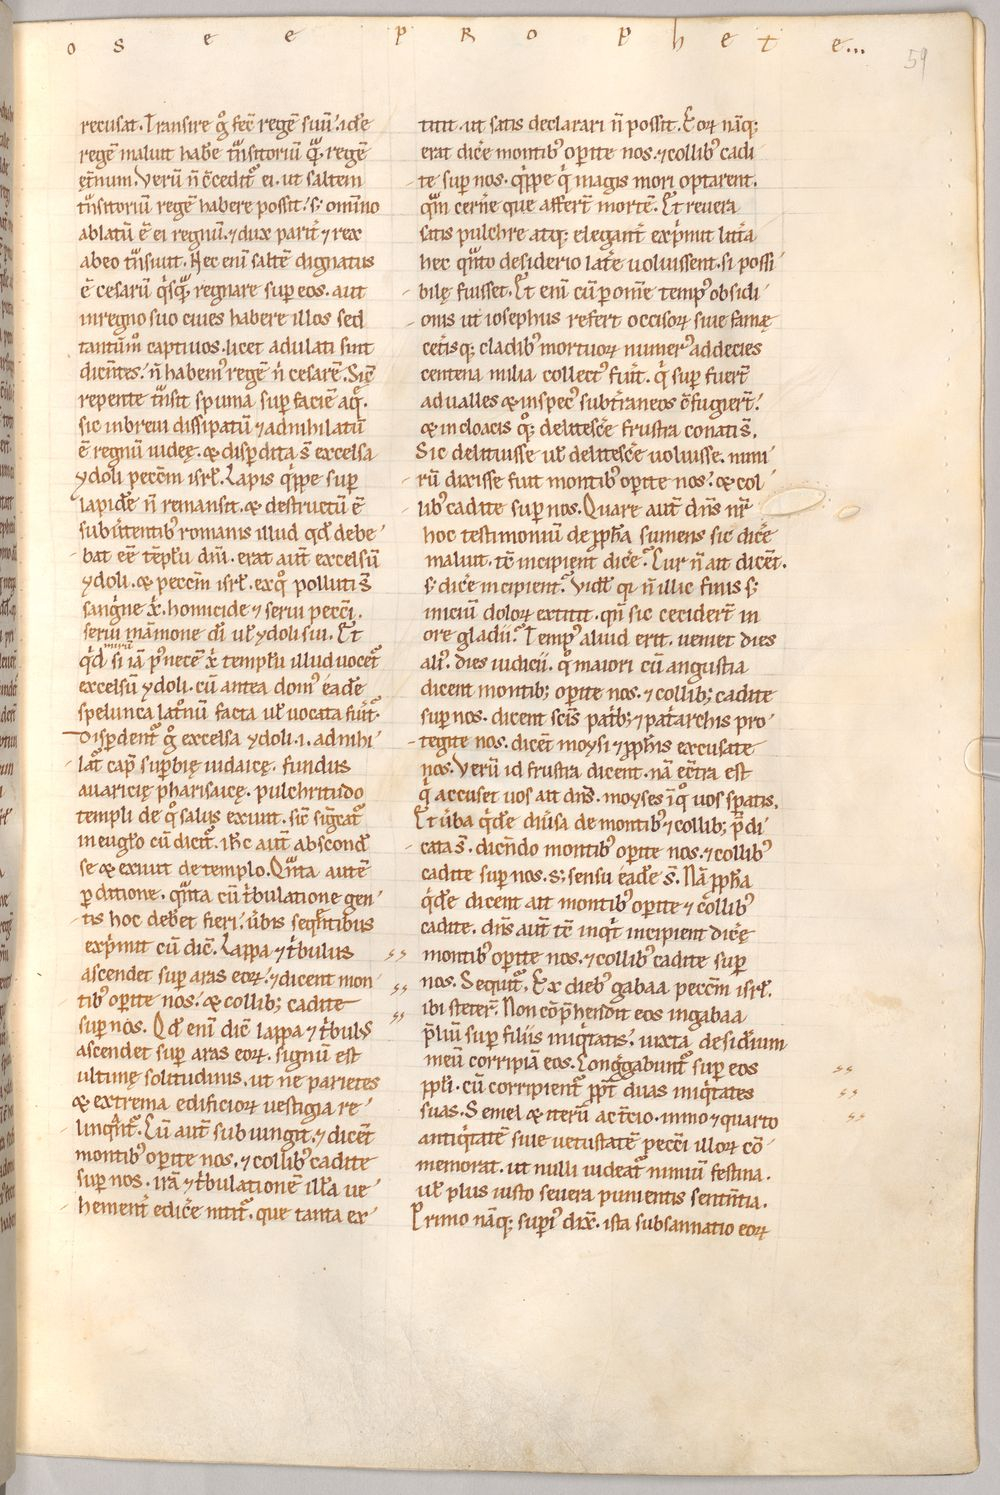 osee prophete...
59
recusat. Transire g̊ fec̄ regē suū. id ē
regē maluit habe᷑ tͣnsitoriū qͣ̄. regē
et̄num. Verū n̄ c̄cedit᷑ ei. ut saltem
tͣnsitoriū regē habere possit. s; om̄ino
ablatū ē ei regnū. ⁊ dux parit᷑ ⁊ rex
ab eo tͣnsiuit. Nec eni᷑ saltē dignatus
ē cesarū qͥsqͣ̄ regnare sup̱ eos. aut
in regno suo ciues habere illos sed
tantūm̊ captiuos. licet adulati sint
dicn̄tes. n̄ habem᷒ regē n̄ cesarē. Sic̄
repente tͣnsit spuma sup̱ faciē aq̄.
sic in breui dissipatū ⁊ adnihilatū
ē regnū iudęę. & disp̱dita s̄ excelsa
ydoli pecc̄m isrl̄. Lapis qͥppe sup̱
lapidē n̄ remansit. & destructū ē
subu᷑tentib᷒ romanis illud qd̄ debe
bat eē tēplū dn̄i. erat aut̄ excelsū
ydoli. & pecc̄m isrl̄. ex qͦ polluti s̄
sangͥne xͥ. homicide ⁊ serui pecc̄i.
serui māmone dī ul̄ ydoli sui. Et
qͥd mirū si iā p᷒ necē xͥ templū illud uocet᷑
excelsū ydoli. cū antea dom᷒ eadē
spelunca latͦnū facta ul̄ uocata fuit᷑.
Disp̱dent᷑ g̊ excelsa ydoli. i. adnihi
lat᷑ cap̄ sup̱bię iudaicę. fundus
auaricię pharisaicę. pulchritudo
templi de qͦ salus exiuit. sic̄ sigͥcat᷑
in eugl̄o cū dicit᷑. ih̄c aut̄ abscond᷑
se & exiuit de templo. Qͣnta autē
p̱ditione. qͣnta cū tͥbulatione gen
tis hoc debet fieri. u᷑bis seqͣntibus
exp̱mit cū dic̄. Lappa ⁊ tͥbulus
ascendet sup̱ aras eoꝝ. ⁊ dicent mon
tib᷒ op̱ite nos. & collib; cadite
sup̱ nos. Qd̄ eni᷑ dic̄ lappa ⁊ tͥbul᷒
ascendet sup̱ aras eoꝝ. signū est
ultimę solitudinis. ut ne parietes
& extrema edificioꝝ uestigia re
linqͣnt᷑. Cū aut̄ subiungit. ⁊ dicēt
montib᷒ op̱ite nos. ⁊ collib᷒ cadite
sup̱ nos. irā ⁊ tͥbulationē illā ue
hement᷑ edice᷑ nitit᷑. que tanta ex
titit. ut satis declarari n̄ possit. Eoꝝ nāq;
erat dice᷑ montib᷒ op̱ite nos. ⁊ collib᷒ cadi
te sup̱ nos. qͥppe qͥ magis mori optarent.
qͣm cerne᷑ que affert̄ mortē. Et reuera
satis pulchre atq; elegant᷑ exp̱mit litt᷑a
hec qͣnto desiderio late᷑ uoluissent. si possi
bilę fuisset. Et enī cū p̱ omē temp᷒ obsidi
onis ut iosephus refert occisoꝝ siue famę
cet᷑isq; cladib᷒ mortuoꝝ numer᷒ ad decies
centena milia collect᷒ fuit᷑. qͥ sup̱ fuert̄
ad ualles & in spec᷒ subt᷑raneos c̄fugiert̄.
& in cloacis qͦq; delitesce᷑ frustra conati s̄.
Sic delituisse ul̄ delitesce᷑ uoluisse. nimi
rū dixisse fuit montib᷒ op̱ite nos. & col
lib᷒ cadite sup̱ nos. Quare aut̄ dn̄s nr̄
hoc testimoniū de ꝓph̄a sumens sic dice᷑
maluit. tc̄ incipient dice᷑. Cur n̄ ait dicēt.
s; dice᷑ incipient. Vidl̄ qͥ n̄ illic finis s;
iniciū doloꝝ extitit. qn̄ sic cecidert̄ in
ore gladii. Temp᷒ aliud erit. ueniet dies
ali᷒. dies iudicii. qͦ maiori cū angustia
dicent montib; op̱ite nos. ⁊ collib; cadite
sup̱ nos. dicent scīs patͥb; ⁊ patͥarchis pro
tegite nos. dicēt moysi ⁊ ꝓph̄is excusate
nos. Verū id frustra dicent. nā e ēt̄ra est
qͥ accuset uos ait dn̄s. moyses ī qͦ uos sp̱atis.
Et u᷑ba qͥdē diu᷑sa de montib᷒ ⁊ collib; p̄di
cata s̄. dicn̄do montib᷒ op̱ite nos. ⁊ collib᷒
cadite sup̱ nos. s; sensu eadē s̄. Nā ꝓph̄a
qͥdē dicent ait montib᷒ op̱ite ⁊ collib᷒
cadite. dn̄s aut̄ tc̄ inqͥt incipient dice᷑
montib᷒ op̱ite nos. ⁊ collib᷒ cadite sup̱
nos. Sequit᷑. Ex dieb᷒ gabaa pecc̄m isrl̄.
ibi steter̄. Non cōp̄hendit eos in gabaa
p̄liū sup̱ filiis iniqͥtatis. iuxta desid᷑ium
meū corripiā eos. Cong᷑gabunt᷑ sup̱ eos
ppl̄i. cū corripient᷑ ppt̄ duas iniqͥtates
suas. Semel & iterū ac t᷑cio. immo ⁊ quarto
antiqͥtatē siue uetustatē pecc̄i illoꝝ cō
memorat. ut nulli uideat᷑ nimiū festina.
ul̄ plus iusto seuera punientis sentn̄tia.
Primo nāq; sup̱i᷒ dix̄. ista subsannatio eoꝝ